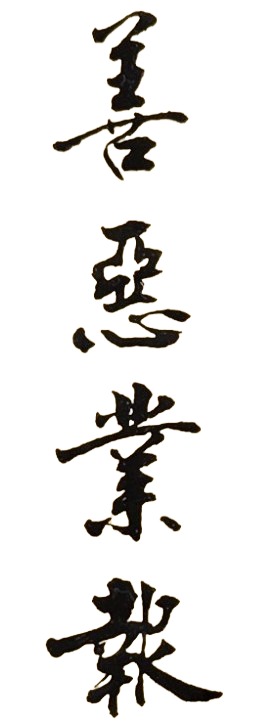 善惡業報